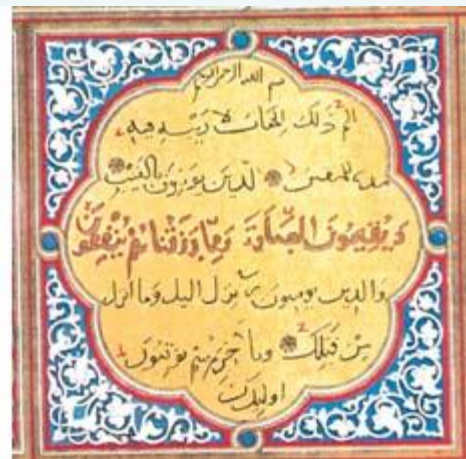 بسم الله الرحمن الرحيم
الم ذلك الكتاب لا ريب فيه
هدى للمتقين الذين يؤمنون بالغيب
ويقيمون الصلوة ومما رزقناهم ينفقون
والذين يؤمنون بما انزل اليك وما انزل
من قبلك وبالآخرة هم يوقنون
اولئك